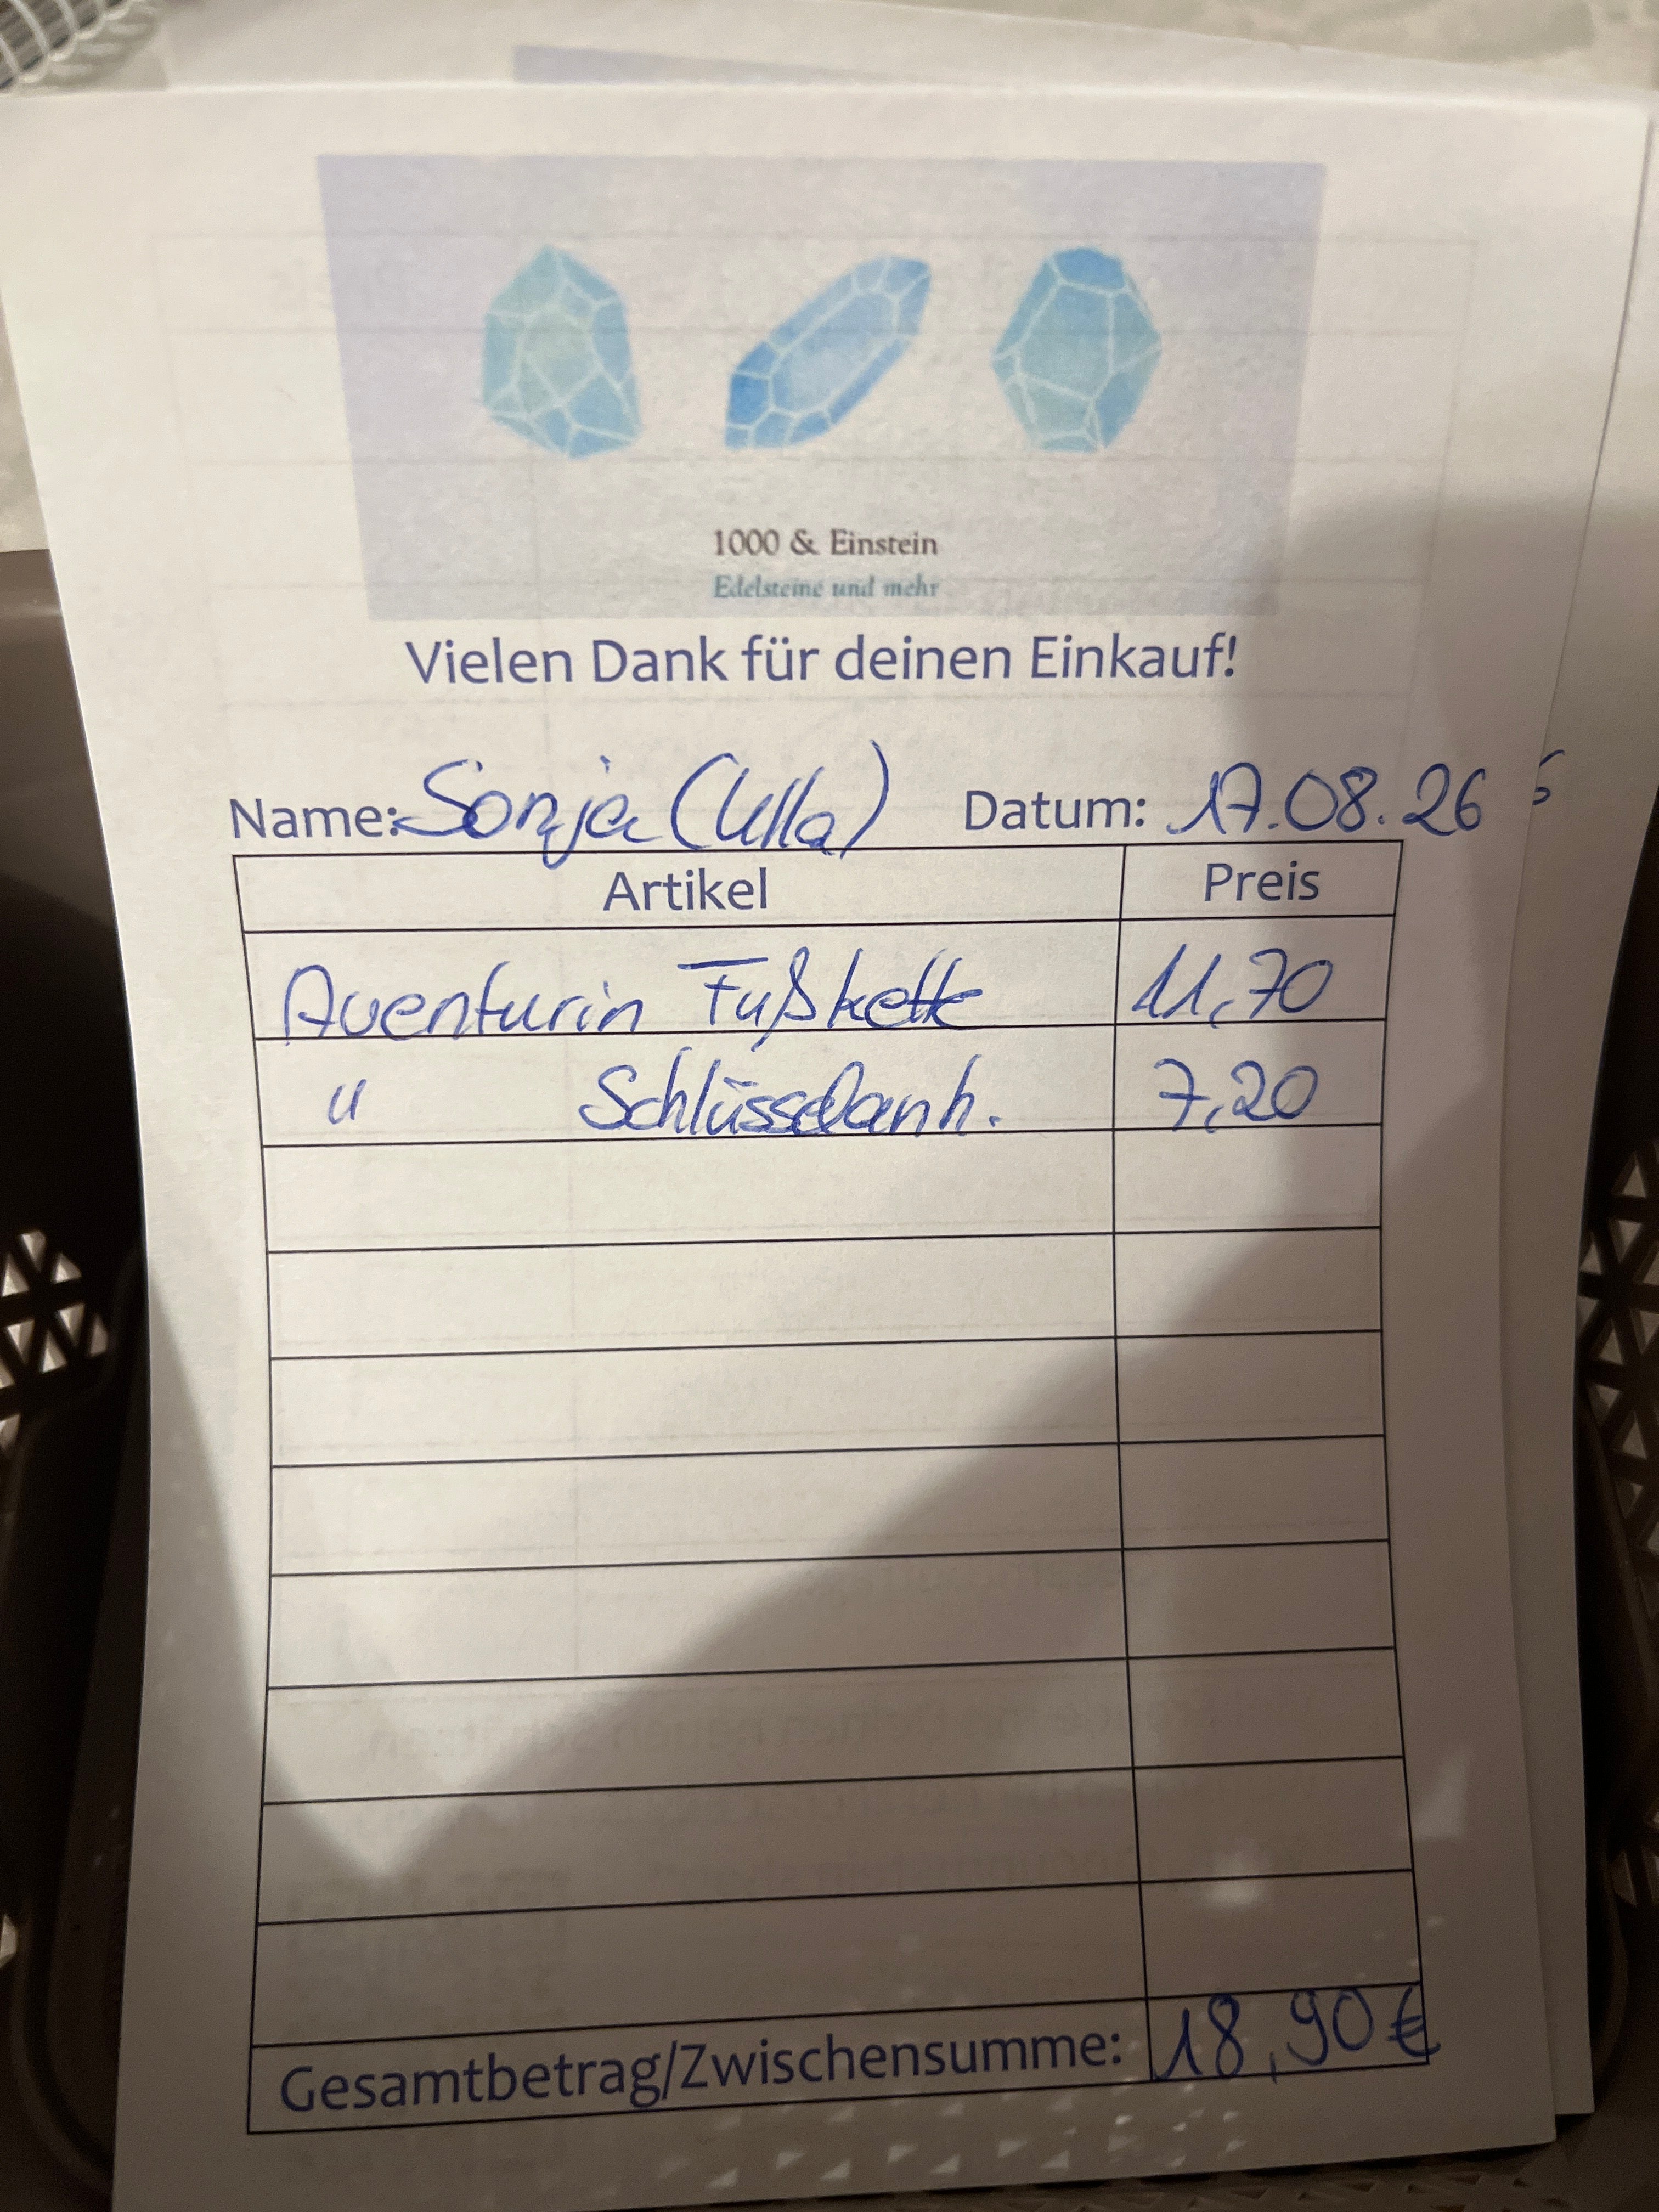 1000 & Einstein
Edelsteine und mehr
Vielen Dank für deinen Einkauf!
Name: Sonja (Ulla) Datum: 17.08.26
Artikel Preis
Aventurin Fußkette 11,70
" Schlüsselanh. 7,20
Gesamtbetrag/Zwischensumme: 18,90€